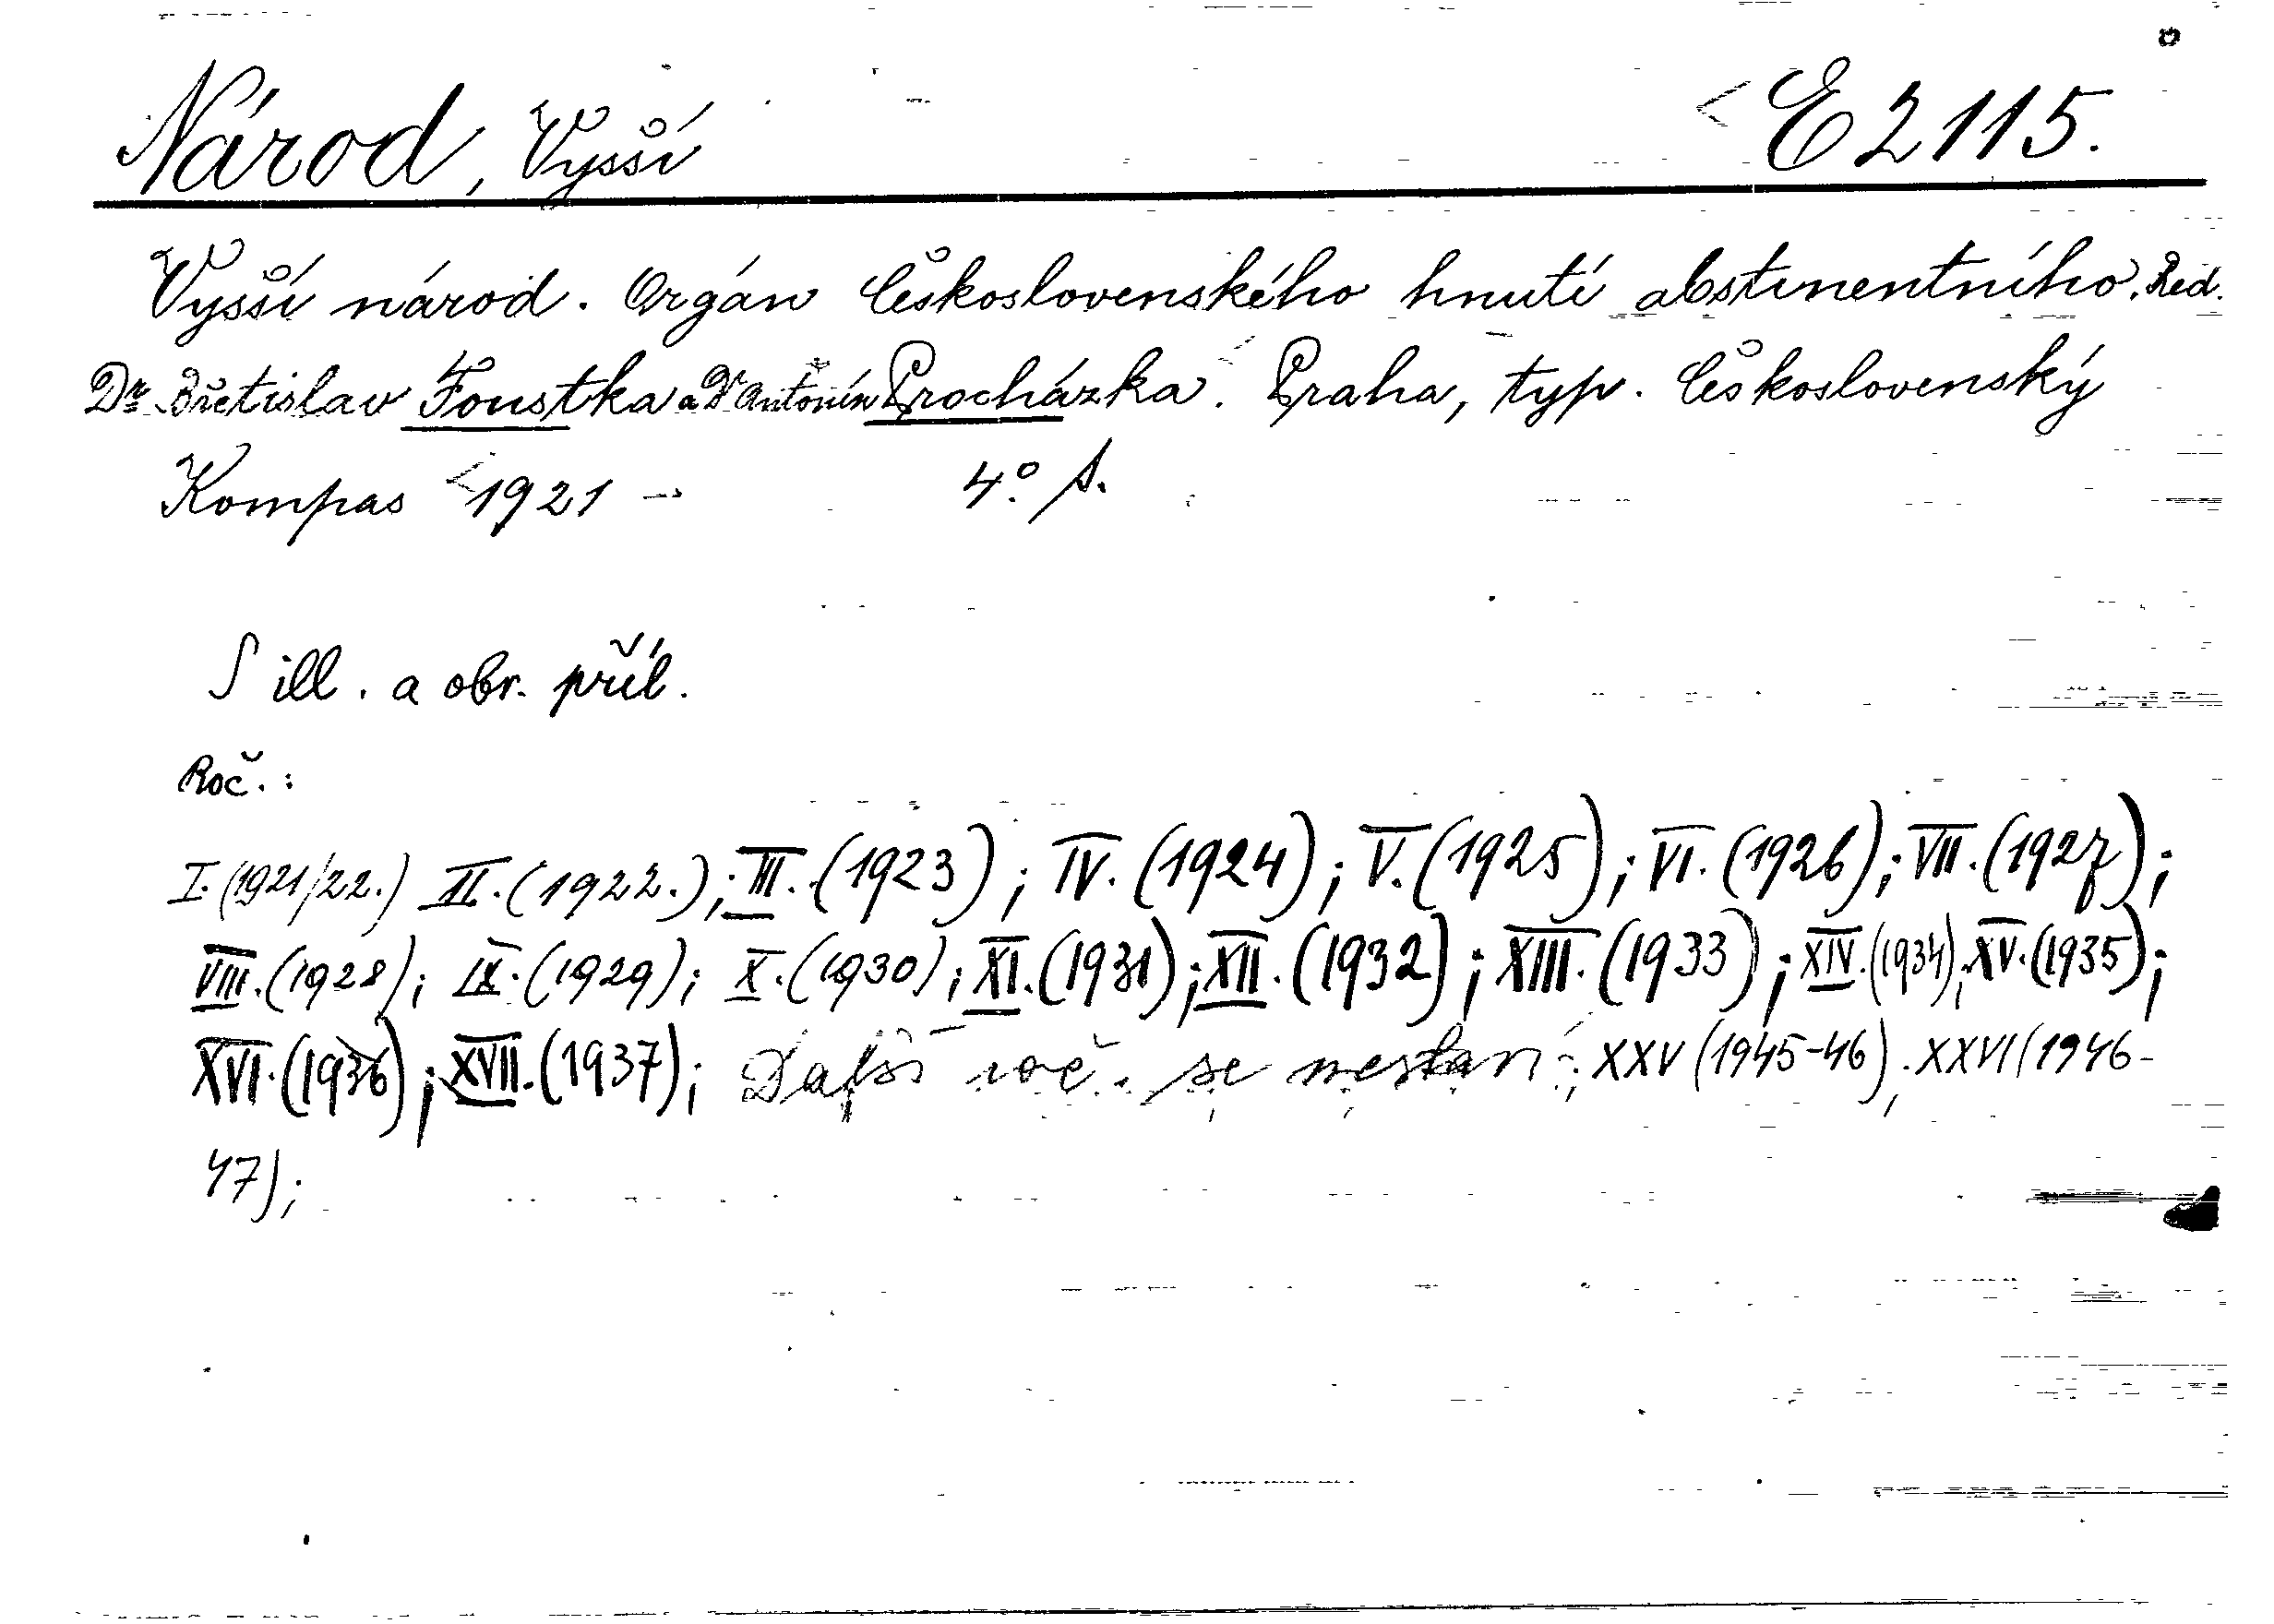 Národ, Vyšší E 2115.
Vyšší národ. Orgán Československého hnutí abstinentního. Red.
Dr. Břetislav Foustka a Dr Antonín Procházka. Praha, typ. Československý
Kompas 1921 — 4° s.
S ill. a obr. příl.
Roč.:
I. (1921/22.) II. (1922.); III. (1923); IV. (1924); V. (1925); VI. (1926); VII. (1927);
VIII. (1928); IX. (1929); X. (1930); XI. (1931); XII. (1932); XIII. (1933); XIV. (1934); XV. (1935);
XVI. (1936); XVII. (1937); Další roč. se XXV (1945-46); XXVI (1946-
47);